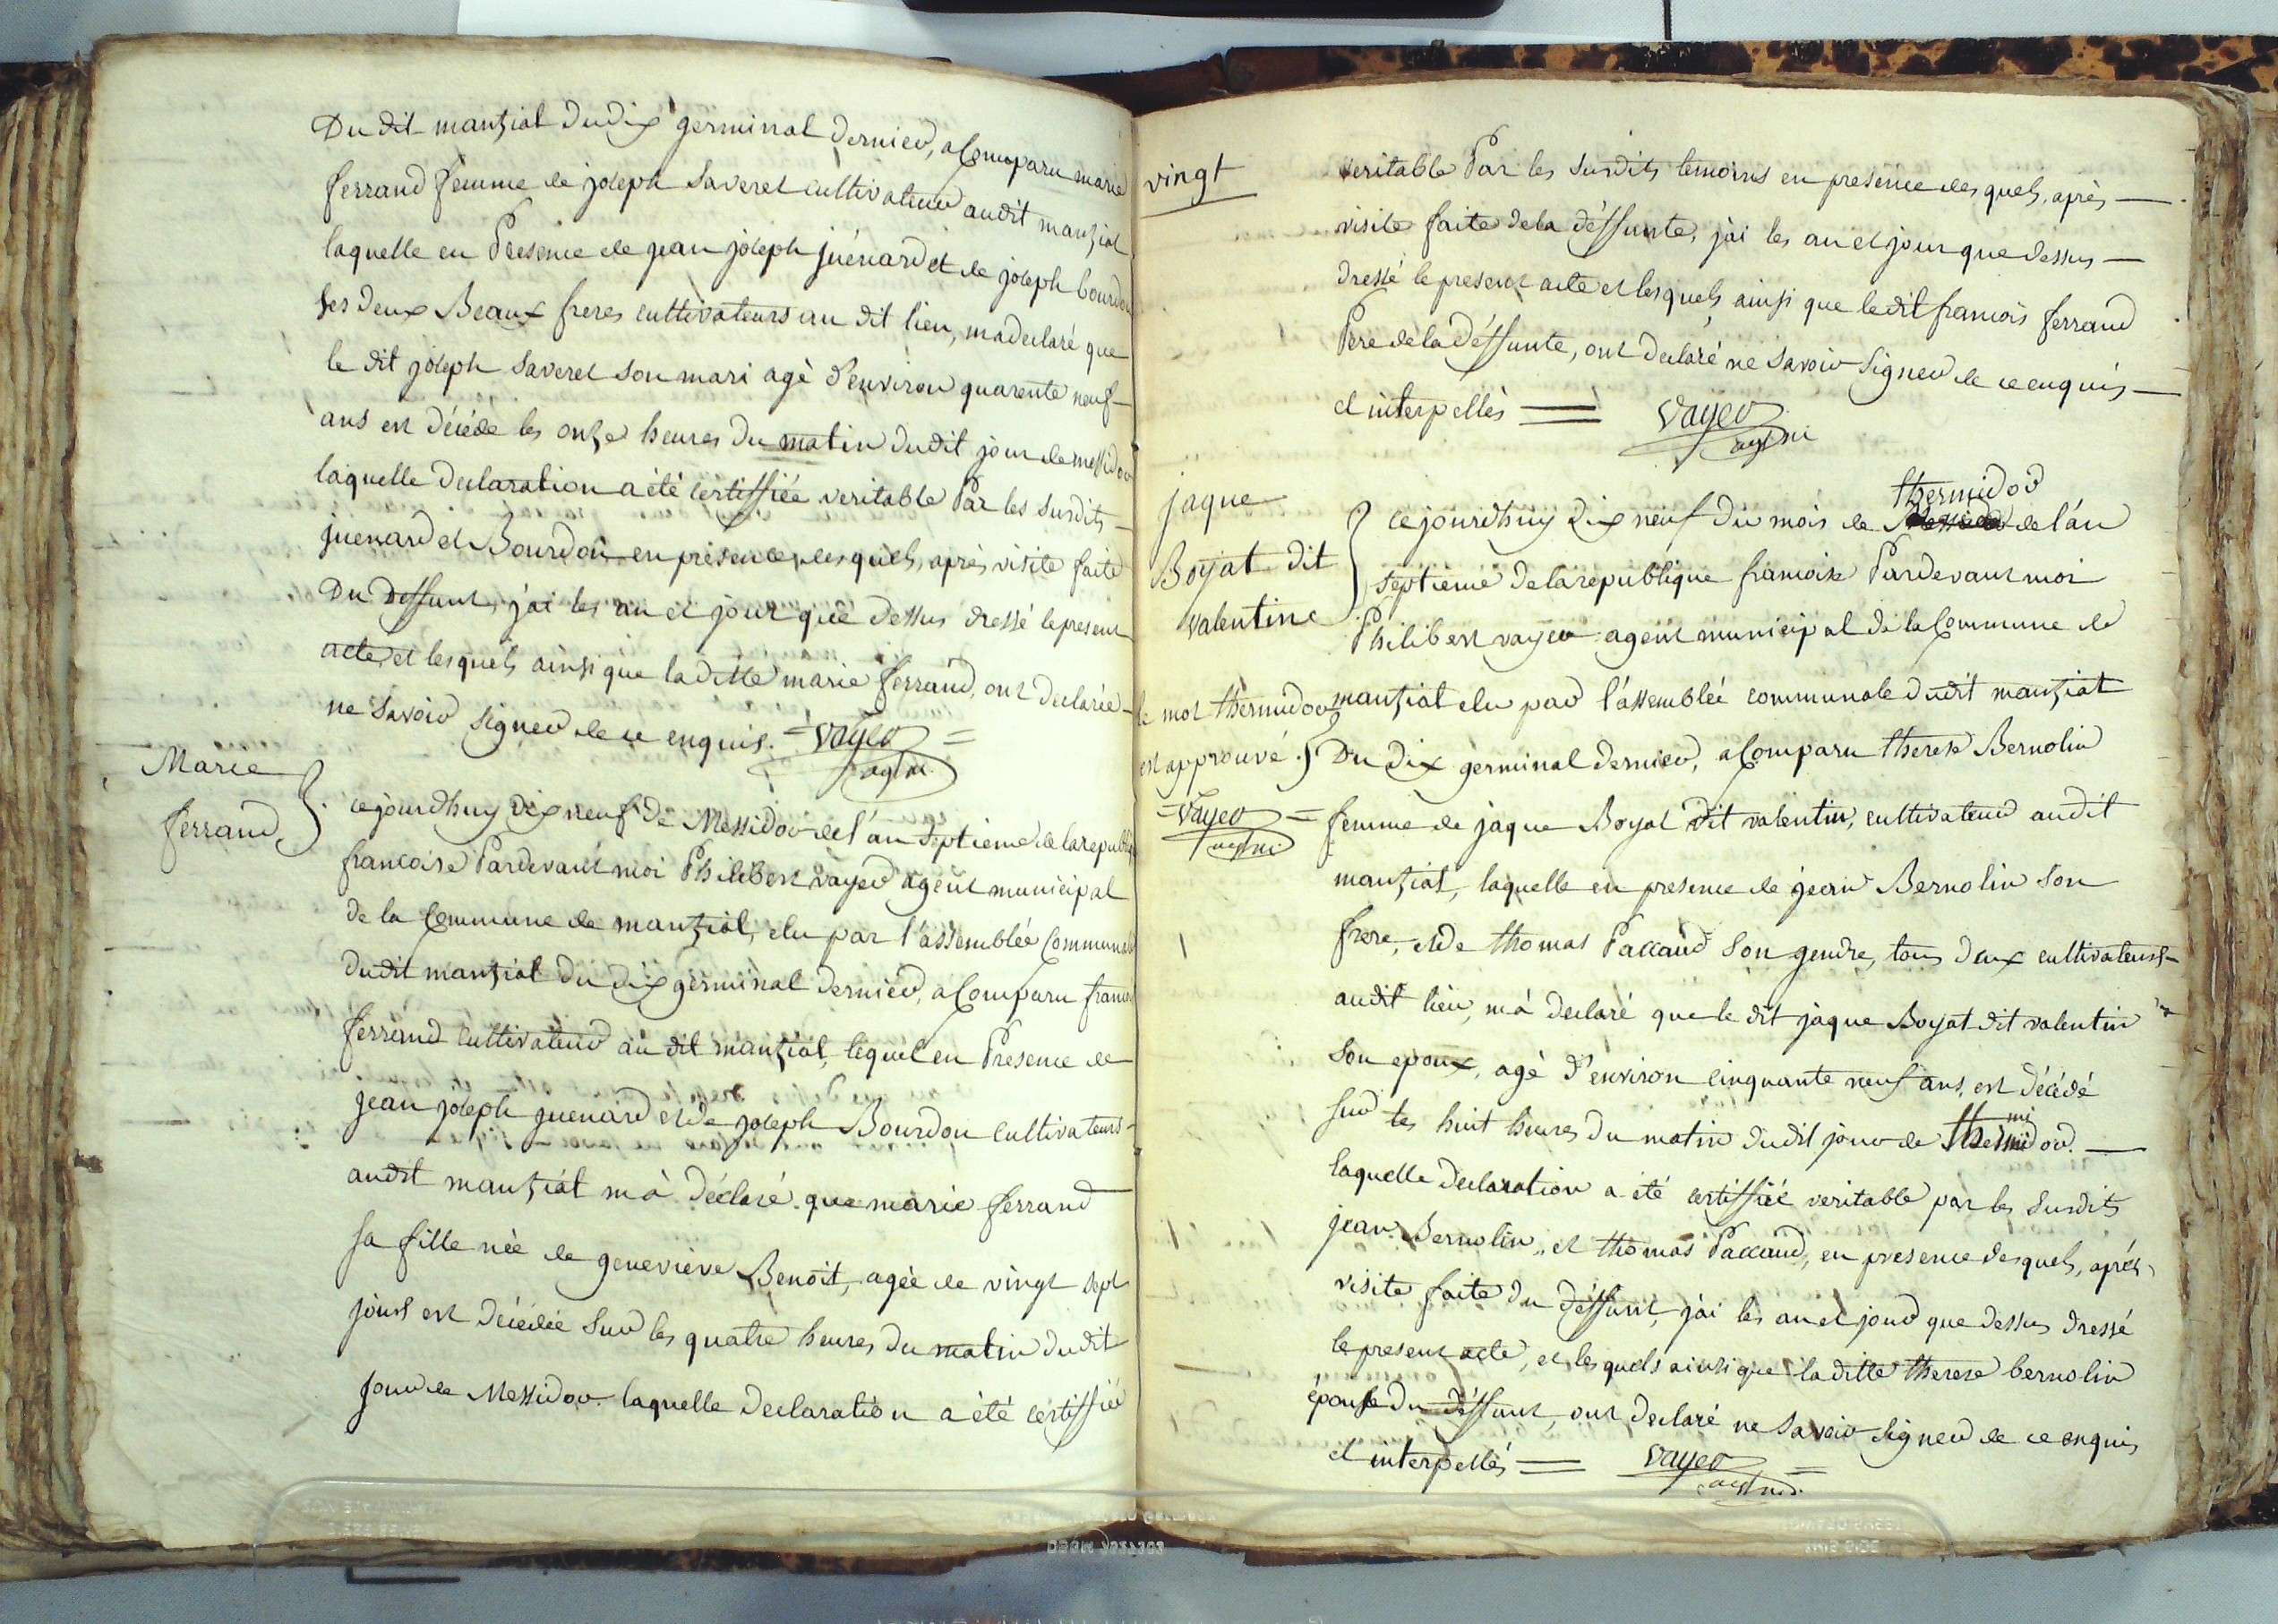 Du dit manziat du dix germinal dernier, a Comparu marie
ferrand femme de joseph Saveret cultivateur audit manziat
laquelle en Presence de jean joseph juénard et de joseph bourdon
ses deux Beaux freres cultivateurs au dit lieu, m'a declaré que
le dit joseph Saveret son mari agè d'environ quarente neuf
ans est décédé les onze heures du matin dudit jour de messidor
laquelle declaration a été certiffiée veritable Par les susdits
juenard et Bourdon en présence desquels, après visite faite
Du deffunt, j'ai les an et jour que dessus dressé le present
acte, et lesquels ainsi que la ditte marie ferrand, ont declarée
ne savoir signer de ce enquis. = vayer =
agt ni
Marie
ferrand
cejourdhuy dix neuf de Messidor de l'an septieme de la republiq
francoise Pardevant moi Philibert vayer agent municipal
de la Commune de manziat, elu par l'assemblée Communale
dudit manziat du dix germinal dernier, a Comparu francois
ferrand cultivateur au dit manziat, lequel en Presence de
jean joseph juenard et de joseph Bourdon cultivateurs
audit manziat m'a déclaré que marie ferrand
sa fille née de genevieve Benoit, agée de vingt sept
jours est décédée sur les quatre heures du matin dudit
jour de Messidor laquelle declaration a été certiffiée
vingt
veritable Par les susdits temoins en presence desquels, après
visite faite de la déffunte, j'ai les an et jour que dessus
dressé le present acte et lesquels ainsi que le dit francois ferrand
Pere de la déffunte, ont declaré ne savoir signer de ce enquis
et interpellès = vayer
agt ni
jaque
Boyat dit
valentine
thermidor
cejourdhuy dix neuf du mois de Messidor de l'an
septieme de la republique francoise Pardevant moi
Philibert vayer agent municipal de la Commune de
manziat elu par l'assemblée communale dudit manziat
le mot thermidor
est approuvé.
= vayer =
agt ni
Du dix germinal dernier, a Comparu therese Bernolin
femme de jaque Boyat dit valentin, cultivateur audit
manziat, laquelle en presence de jean Bernolin son
frere, et de thomas Paccaud son gendre, tous deux cultivateurs
audit lieu, m'a declaré que le dit jaque Boyat dit valentin
son epoux, agé d'environ cinquante neuf ans, est décédé
sur les huit heures du matin dudit jour de thermidor.
mi
laquelle declaration a été certiffiée veritable par les susdits
jean Bernolin, et thomas Paccaud, en presence desquels, après
visite faite du déffunt, j'ai les an et jour que dessus dressé
le present acte, et lesquels ainsi que la ditte therese bernolin
épouse du déffunt, ont declaré ne savoir signer de ce enquis
et interpellés = vayer =
agt ni.